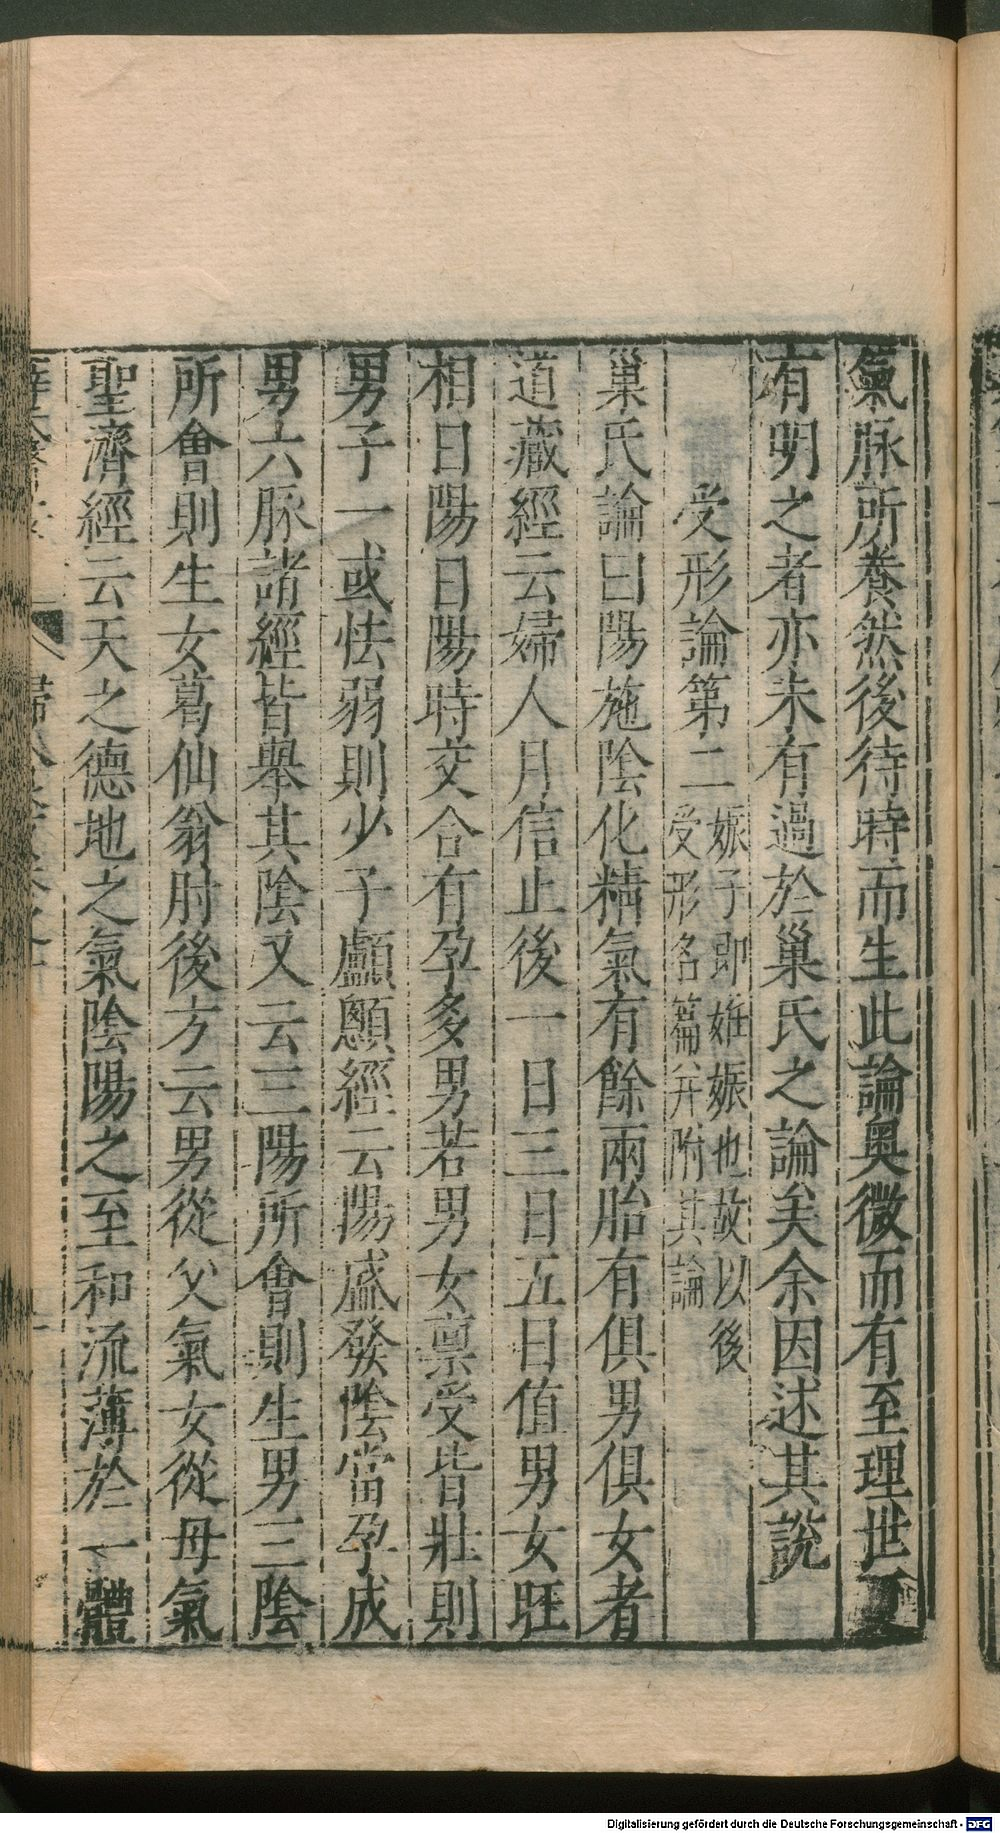 氣脉所養然後待時而生此論奧微而有至理世
有明之者亦未有過於巢氏之論矣余因述其說
受形論第二 娠子即妊娠也故以後受形名篇并附其論
巢氏論曰陽施陰化精氣有餘兩胎有俱男俱女者
道藏經云婦人月信止後一日三日五日值男女旺
相日陽日陽時交合有孕多男若男女禀受皆壯則
男子一或怯弱則少子顱顖經云陽盛發陰當孕成
男六脉諸經皆舉其陰又云三陽所會則生男三陰
所會則生女葛仙翁肘後方云男從父氣女從母氣
聖濟經云天之德地之氣陰陽之至和流薄於一體
Digitalisierung gefördert durch die Deutsche Forschungsgemeinschaft - DFG